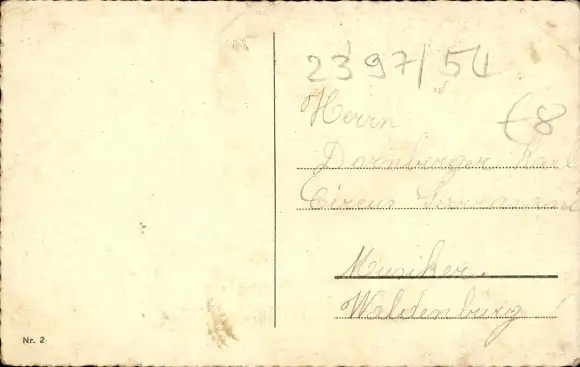 2397/54
Herrn
€8
Dormberger Karl
Circus Sarrasani
Musiker.
Waldenburg
Nr. 2